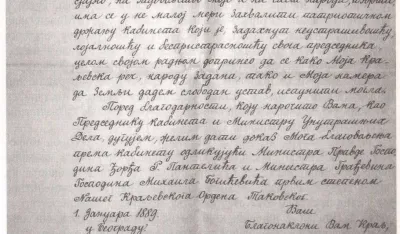 има се у не малој мери захвалити патриотичном
држању кабинета који је, задахнут неустрашивошћу,
лојалношћу и беспристрасношћу свога председника,
целом својом радњом допринео да се како Моја Кра-
љевска реч, народу задана, тако и Моја намера
да Земљи дадем слободан устав, испунити могла.
Поред благодарности, коју нарочито Вама, као
Председнику кабинета и Министру Унутрашњих
Дела, дугујем, желим дати доказ Мога благовољења
према кабинету одликујући Министра Правде Госпо-
дина Ђорђа Р. Пантелића и Министра Грађевина
Господина Михаила Богићевића првим степеном
Нашег Краљевскога Ордена Таковског.
1. Јануара 1889. Ваш
у Београду. Благонаклони Вам Краљ,